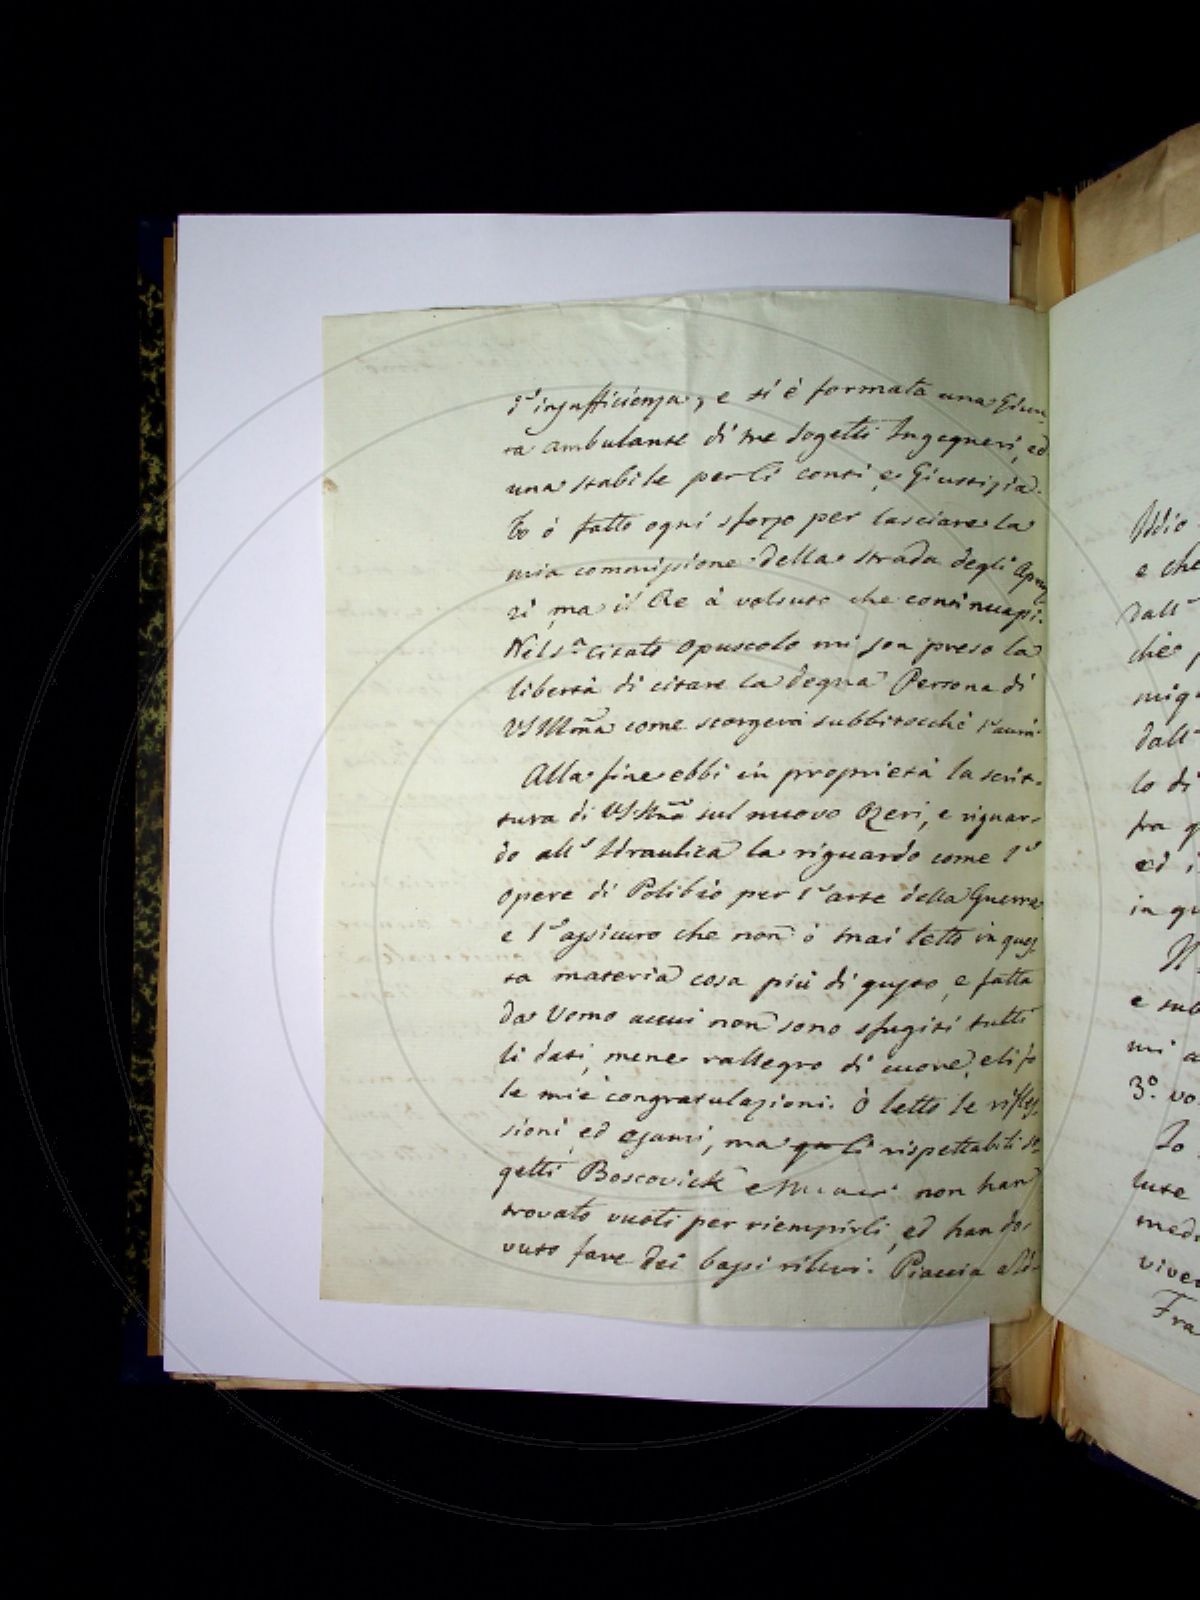 l'insufficienza, e si è formata una Giun
ta ambulante di tre sogetti Ingegneri, ed
una stabile per li conti, e Giustizia.
Io ò fatto ogni sforzo per lasciare la
mia commissione della strada degli Apruz
zi, ma il Re à voluto che continuassi.
Nel citato opuscolo mi son preso la
libertà di citare la degna Persona di
VS Illma come scorgerà subbitocché l'avrà.
Alla fine ebbi in proprietà la scrit-
tura di VS Illma sul nuovo Ozeri, e riguar-
do all'Idraulica la riguardo come l'
opere di Polibio per l'arte della Guerra
e l'assicuro che non ò mai letto in ques
ta materia cosa più di gusto, e fatta
da Uomo a cui non sono sfugiti tutti
li dati, mene rallegro di cuore, e li fo
le mie congratulazioni. Ò letto le rifles
sioni, ed esami, ma li rispettabili so-
getti Boscovick e non han
trovato vuoti per riempirli, ed han do-
vuto fare dei bassi rilievi. Piaccia a Id-
Iddio
e che
dall'
che
dall'
lo di
fra
ed i
in qu
e sub
mi
3.º vo
Io
lute
viver
Fra